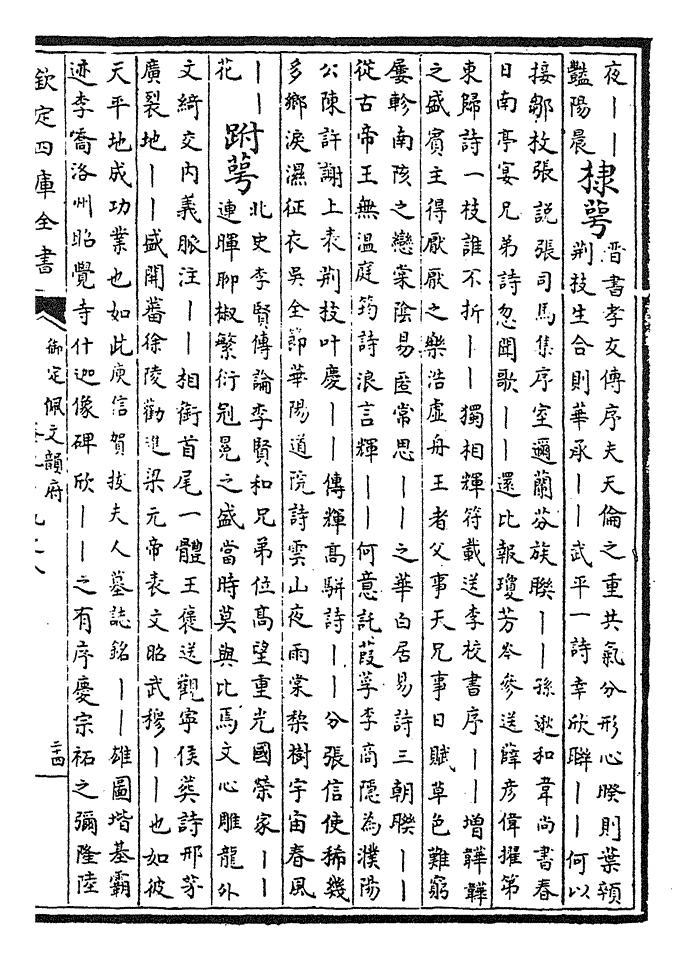 夜——
豔陽晨
棣萼
晉書孝友傳序夫天倫之重共氣分形心睽則葉顇
荆枝生合則華承——武平一詩幸欣聯——何以
接鄒枚張說張司馬集序室邇蘭芬族聯——孫逖和韋尚書春
日南亭宴兄弟詩忽聞歌——還比報瓊芳岑參送薛彦偉擢第
東歸詩一枝誰不折——獨相輝符載送李校書序——增韡韡
之盛賓主得厭厭之樂浩虛舟王者父事天兄事日賦草色難窮
屢軫南陔之戀棠陰易匿常思——之華白居易詩三朝聯——
從古帝王無温庭筠詩浪言輝——何意託葭莩李商隱為濮陽
公陳許謝上表荆枝叶慶——傳輝高駢詩——分張信使稀幾
多鄉淚濕征衣吳全節華陽道院詩雲山夜雨棠棃樹宇宙春風
——
花
跗萼
北史李賢傳論李賢和兄弟位高望重光國榮家——
連暉聊椒繁衍冠冕之盛當時莫與比馬文心雕龍外
文綺交内義脈注——相銜首尾一體王褒送觀寧侯葬詩邢茅
廣裂地——盛開蕃徐陵勸進梁元帝表文昭武穆——也如彼
天平地成功業也如此庾信賀拔夫人墓誌銘——雄圖堦基霸
迹李喬洛州昭覺寺什迦像碑欣——之有序慶宗祏之彌隆陸
欽定四庫全書
御定佩文韻府
二十四